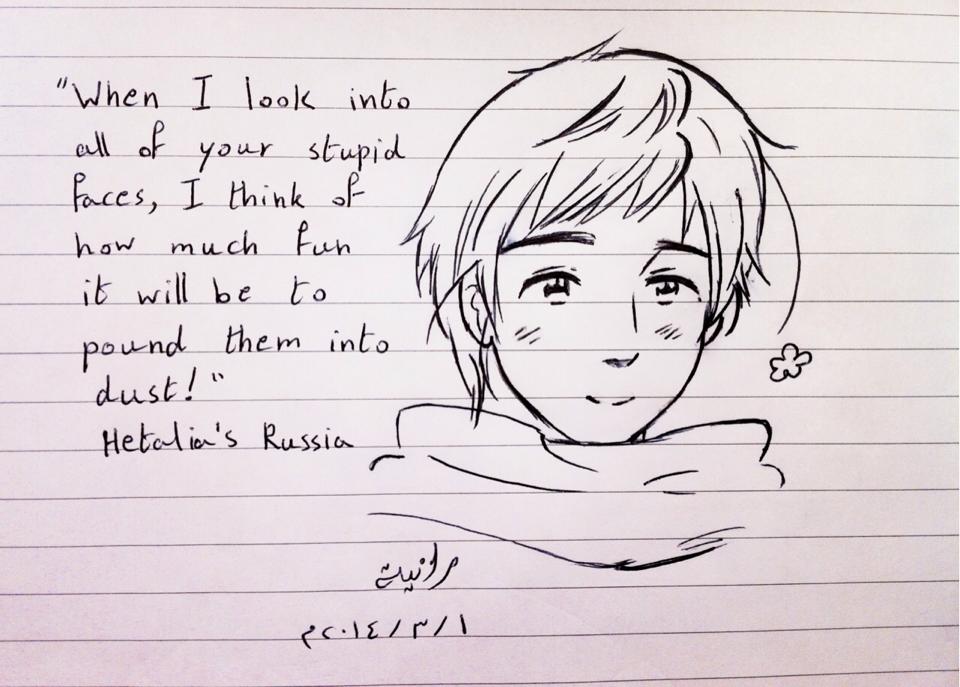 "When I look into
all of your stupid
faces, I think of
how much fun
it will be to
pound them into
dust!"
Hetalia's Russia
١ / ٣ / ٢٠١٤م